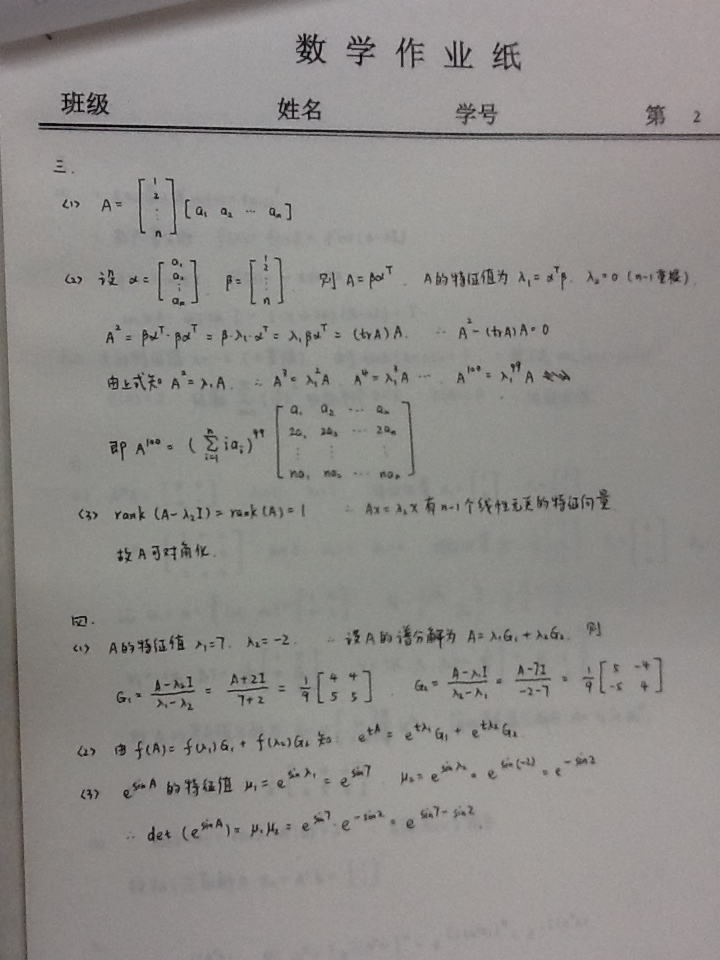 数学作业纸
班级 姓名 学号 第 2
三.
(1) A = [1 2 ⋮ n] [a₁ a₂ ⋯ aₙ]
(2) 设 α = [a₁ a₂ ⋮ aₙ] β = [1 2 ⋮ n] 则 A = βαᵀ. A的特征值为 λ₁ = αᵀβ, λ₂ = 0 (n-1重根).
A² = βαᵀ·βαᵀ = β·λ₁·αᵀ = λ₁βαᵀ = (trA)A. ∴ A² - (trA)A = 0
由上式知 A² = λ₁A. ∴ A³ = λ₁²A A⁴ = λ₁³A ⋯ A¹⁰⁰ = λ₁⁹⁹A
即 A¹⁰⁰ = (∑ⁿᵢ₌₁ iaᵢ)⁹⁹ [a₁ a₂ ⋯ aₙ; 2a₁ 2a₂ ⋯ 2aₙ; ⋮ ⋮ ⋮; na₁ na₂ ⋯ naₙ]
(3) rank (A-λ₂I) = rank(A) = 1 ∴ Ax = λ₂x 有 n-1 个线性无关的特征向量
故 A 可对角化.
四.
(1) A的特征值 λ₁=7, λ₂=-2. ∴ 设A的谱分解为 A = λ₁G₁ + λ₂G₂. 则
G₁ = (A-λ₂I)/(λ₁-λ₂) = (A+2I)/(7+2) = 1/9 [4 4; 5 5]. G₂ = (A-λ₁I)/(λ₂-λ₁) = (A-7I)/(-2-7) = 1/9 [5 -4; -5 4]
(2) 由 f(A) = f(λ₁)G₁ + f(λ₂)G₂ 知 e^{tA} = e^{tλ₁}G₁ + e^{tλ₂}G₂.
(3) e^{sinA} 的特征值 μ₁ = e^{sinλ₁} = e^{sin7} μ₂ = e^{sinλ₂} = e^{sin(-2)} = e^{-sin2}
∴ det (e^{sinA}) = μ₁μ₂ = e^{sin7} e^{-sin2} = e^{sin7-sin2}.